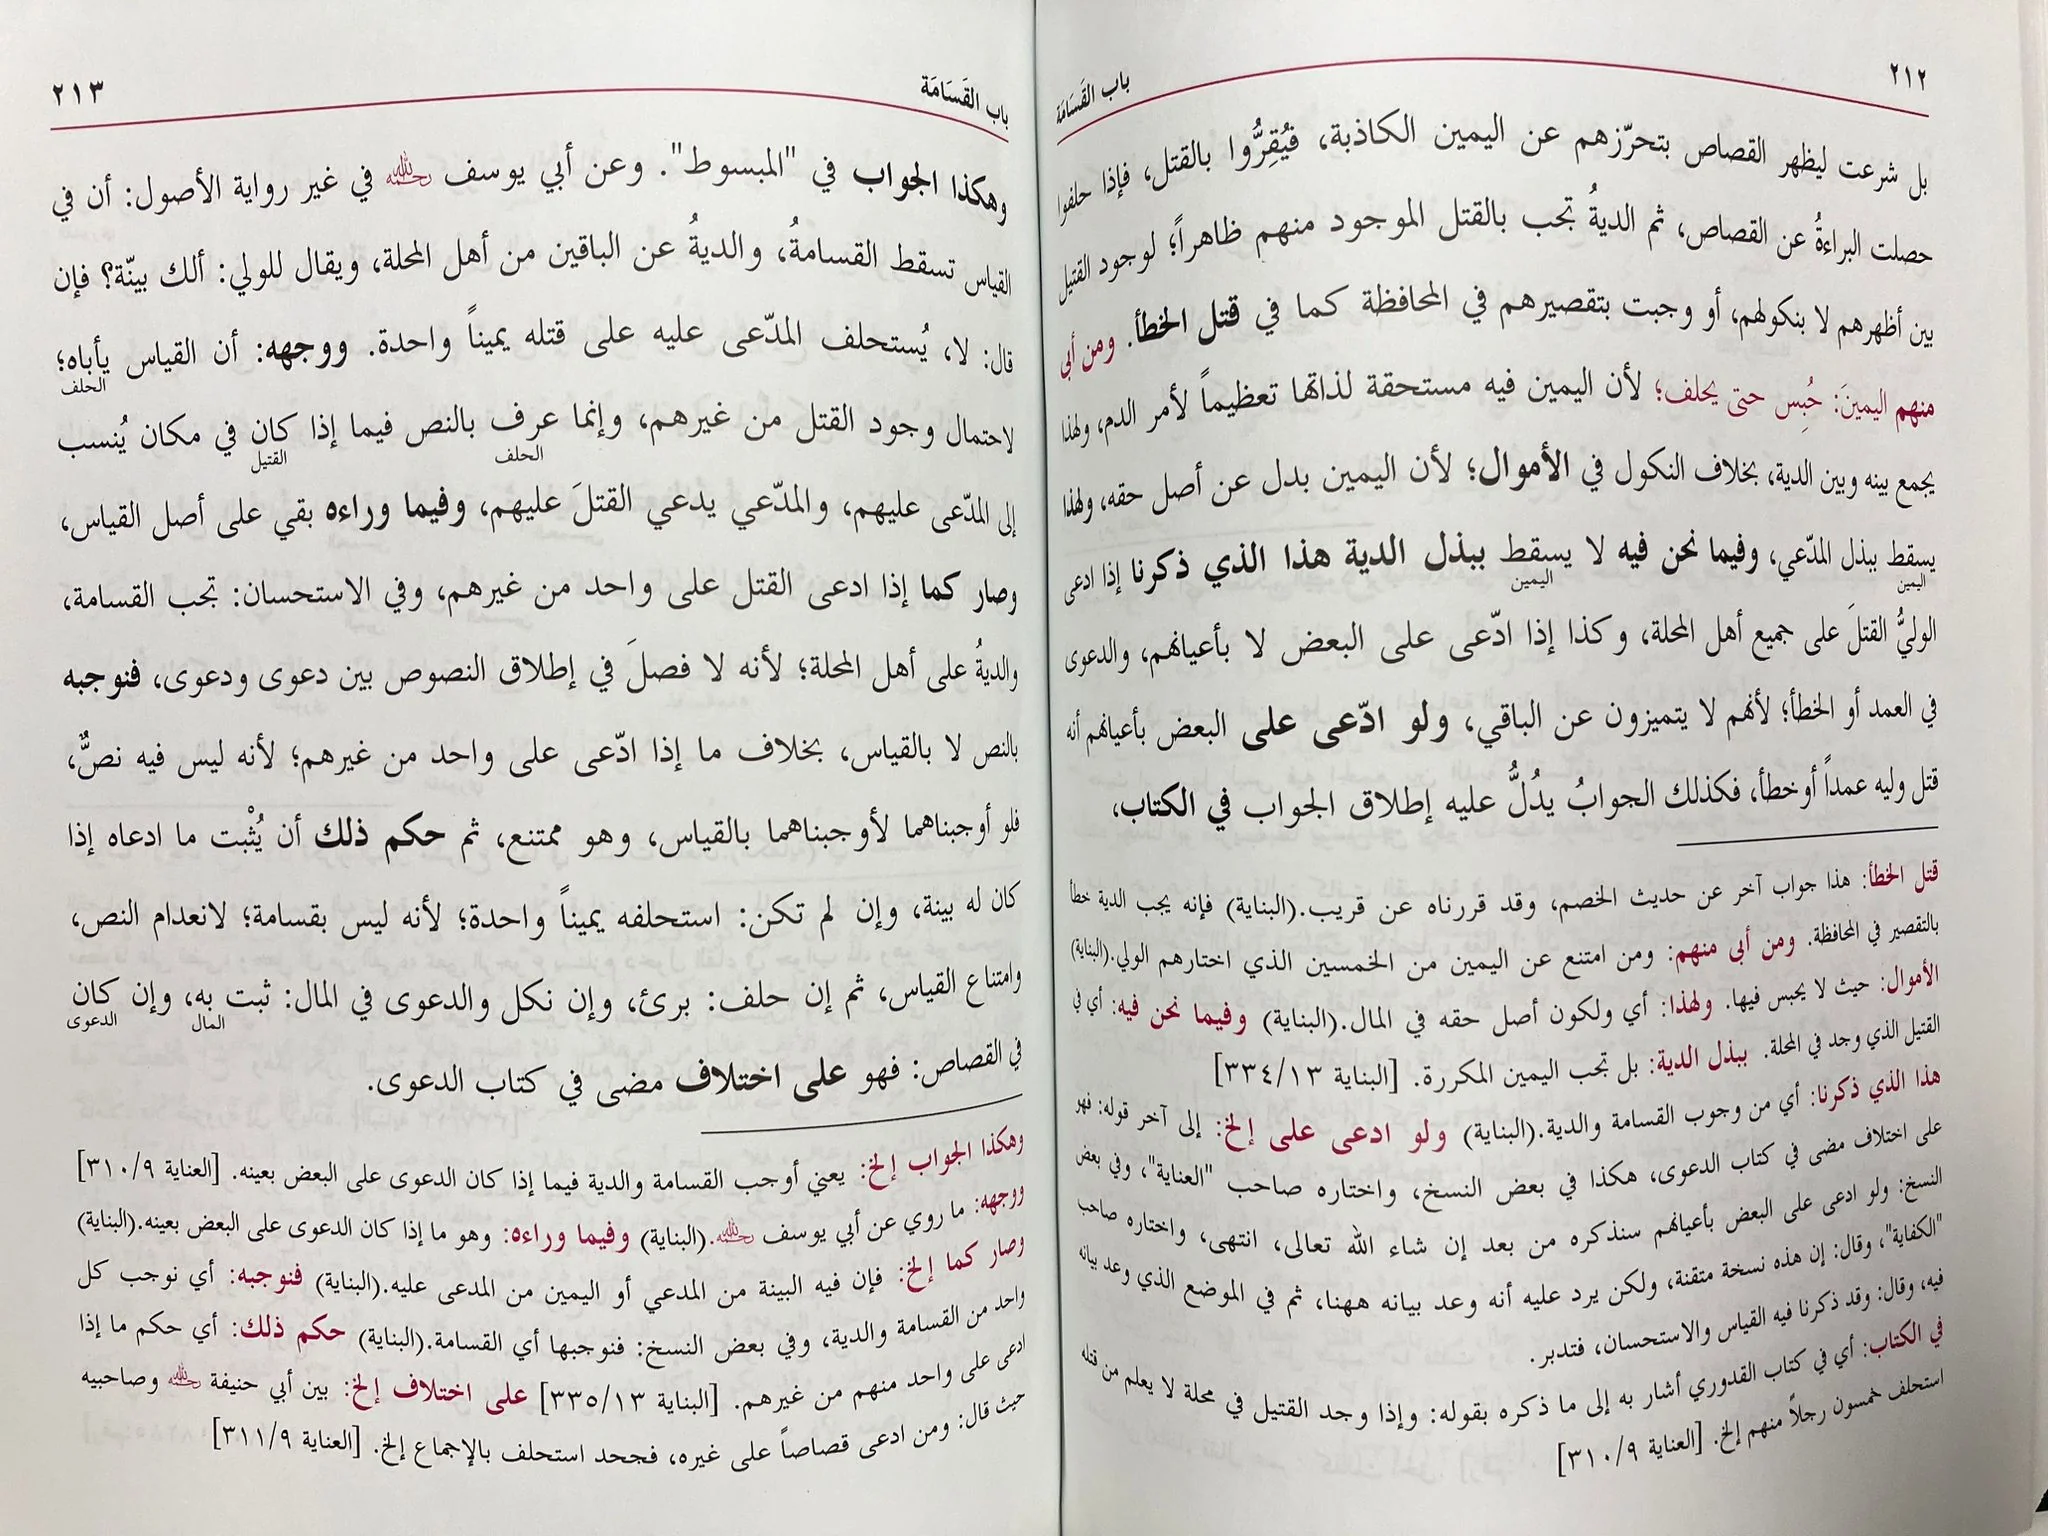 ٢١٢
باب القَسَامَة
بل شرعت ليظهر القصاص بتحرّزهم عن اليمين الكاذبة، فيُقِرُّوا بالقتل، فإذا حلفوا
حصلت البراءةُ عن القصاص، ثم الديةُ تجب بالقتل الموجود منهم ظاهراً؛ لوجود القتيل
بين أظهرهم لا بنكولهم، أو وجبت بتقصيرهم في المحافظة كما في قتل الخطأ. ومن أبى
منهم اليمينَ: حُبِس حتى يحلف؛ لأن اليمين فيه مستحقة لذاتها تعظيماً لأمر الدم، ولهذا
يجمع بينه وبين الدية، بخلاف النكول في الأموال؛ لأن اليمين بدل عن أصل حقه، ولهذا
يسقط ببذل المدّعي، وفيما نحن فيه لا يسقط ببذل الدية هذا الذي ذكرنا إذا ادعى
اليمين اليمين
الوليُّ القتلَ على جميع أهل المحلة، وكذا إذا ادّعى على البعض لا بأعيانهم، والدعوى
في العمد أو الخطأ؛ لأنهم لا يتميزون عن الباقي، ولو ادّعى على البعض بأعيانهم أنه
قتل وليه عمداً أوخطأ، فكذلك الجوابُ يدُلُّ عليه إطلاق الجواب في الكتاب،
قتل الخطأ: هذا جواب آخر عن حديث الخصم، وقد قررناه عن قريب.(البناية) فإنه يجب الدية خطأ
بالتقصير في المحافظة. ومن أبى منهم: ومن امتنع عن اليمين من الخمسين الذي اختارهم الولي.(البناية)
الأموال: حيث لا يحبس فيها. ولهذا: أي ولكون أصل حقه في المال.(البناية) وفيما نحن فيه: أي في
القتيل الذي وجد في المحلة. ببذل الدية: بل تجب اليمين المكررة. [البناية ٣٣٤/١٣]
هذا الذي ذكرنا: أي من وجوب القسامة والدية.(البناية) ولو ادعى على إلخ: إلى آخر قوله: فهو
على اختلاف مضى في كتاب الدعوى، هكذا في بعض النسخ، واختاره صاحب "العناية"، وفي بعض
النسخ: ولو ادعى على البعض بأعيانهم سنذكره من بعد إن شاء الله تعالى، انتهى، واختاره صاحب
"الكفاية"، وقال: إن هذه نسخة متقنة، ولكن يرد عليه أنه وعد بيانه ههنا، ثم في الموضع الذي وعد بيانه
فيه، وقال: وقد ذكرنا فيه القياس والاستحسان، فتدبر.
في الكتاب: أي في كتاب القدوري أشار به إلى ما ذكره بقوله: وإذا وجد القتيل في محلة لا يعلم من قتله
استحلف خمسون رجلاً منهم إلخ. [العناية ٣١٠/٩]
باب القَسَامَة
٢١٣
وهكذا الجواب في "المبسوط". وعن أبي يوسف رحمه الله في غير رواية الأصول: أن في
القياس تسقط القسامةُ، والديةُ عن الباقين من أهل المحلة، ويقال للولي: ألك بينّة؟ فإن
قال: لا، يُستحلف المدّعى عليه على قتله يميناً واحدة. ووجهه: أن القياس يأباه؛
الحلف
لاحتمال وجود القتل من غيرهم، وإنما عرف بالنص فيما إذا كان في مكان يُنسب
الحلف القتيل
إلى المدّعى عليهم، والمدّعي يدعي القتلَ عليهم، وفيما وراءه بقي على أصل القياس،
وصار كما إذا ادعى القتل على واحد من غيرهم، وفي الاستحسان: تجب القسامة،
والديةُ على أهل المحلة؛ لأنه لا فصلَ في إطلاق النصوص بين دعوى ودعوى، فنوجبه
بالنص لا بالقياس، بخلاف ما إذا ادّعى على واحد من غيرهم؛ لأنه ليس فيه نصٌّ،
فلو أوجبناهما لأوجبناهما بالقياس، وهو ممتنع، ثم حكم ذلك أن يُثْبت ما ادعاه إذا
كان له بينة، وإن لم تكن: استحلفه يميناً واحدة؛ لأنه ليس بقسامة؛ لانعدام النص،
وامتناع القياس، ثم إن حلف: برئ، وإن نكل والدعوى في المال: ثبت به، وإن كان
المال الدعوى
في القصاص: فهو على اختلاف مضى في كتاب الدعوى.
وهكذا الجواب إلخ: يعني أوجب القسامة والدية فيما إذا كان الدعوى على البعض بعينه. [العناية ٣١٠/٩]
ووجهه: ما روي عن أبي يوسف رحمه الله.(البناية) وفيما وراءه: وهو ما إذا كان الدعوى على البعض بعينه.(البناية)
وصار كما إلخ: فإن فيه البينة من المدعي أو اليمين من المدعى عليه.(البناية) فنوجبه: أي نوجب كل
واحد من القسامة والدية، وفي بعض النسخ: فنوجبها أي القسامة.(البناية) حكم ذلك: أي حكم ما إذا
ادعى على واحد منهم من غيرهم. [البناية ٣٣٥/١٣] على اختلاف إلخ: بين أبي حنيفة رحمه الله وصاحبيه
حيث قال: ومن ادعى قصاصاً على غيره، فجحد استحلف بالإجماع إلخ. [العناية ٣١١/٩]